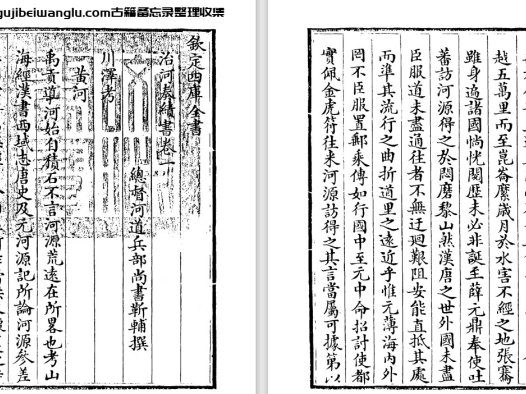 gujibeiwanglu.com古籍备忘录整理收集
欽定四庫全書
治河奏績書卷一
總督河道兵部尚書靳輔撰
川澤考
黃河
禹貢導河始自積石不言河源荒遠在所畧也考山
海經漢書西域志唐史及元河源記所論河源參差
越五萬里而至崑崙縻歲月於水害不經之地張騫
雖身適諸國惝恍閱歷未必非誕至薛元鼎奉使吐
蕃訪河源得之於悶磨黎山然漢唐之世外國未盡
臣服道未盡通往者不無迂迴艱阻安能直抵其處
而準其流行之曲折道里之遠近乎惟元薄海内外
罔不臣服置郵乘傳如行國中至元中命招討使都
實佩金虎符往來河源訪得之其言當屬可據第以